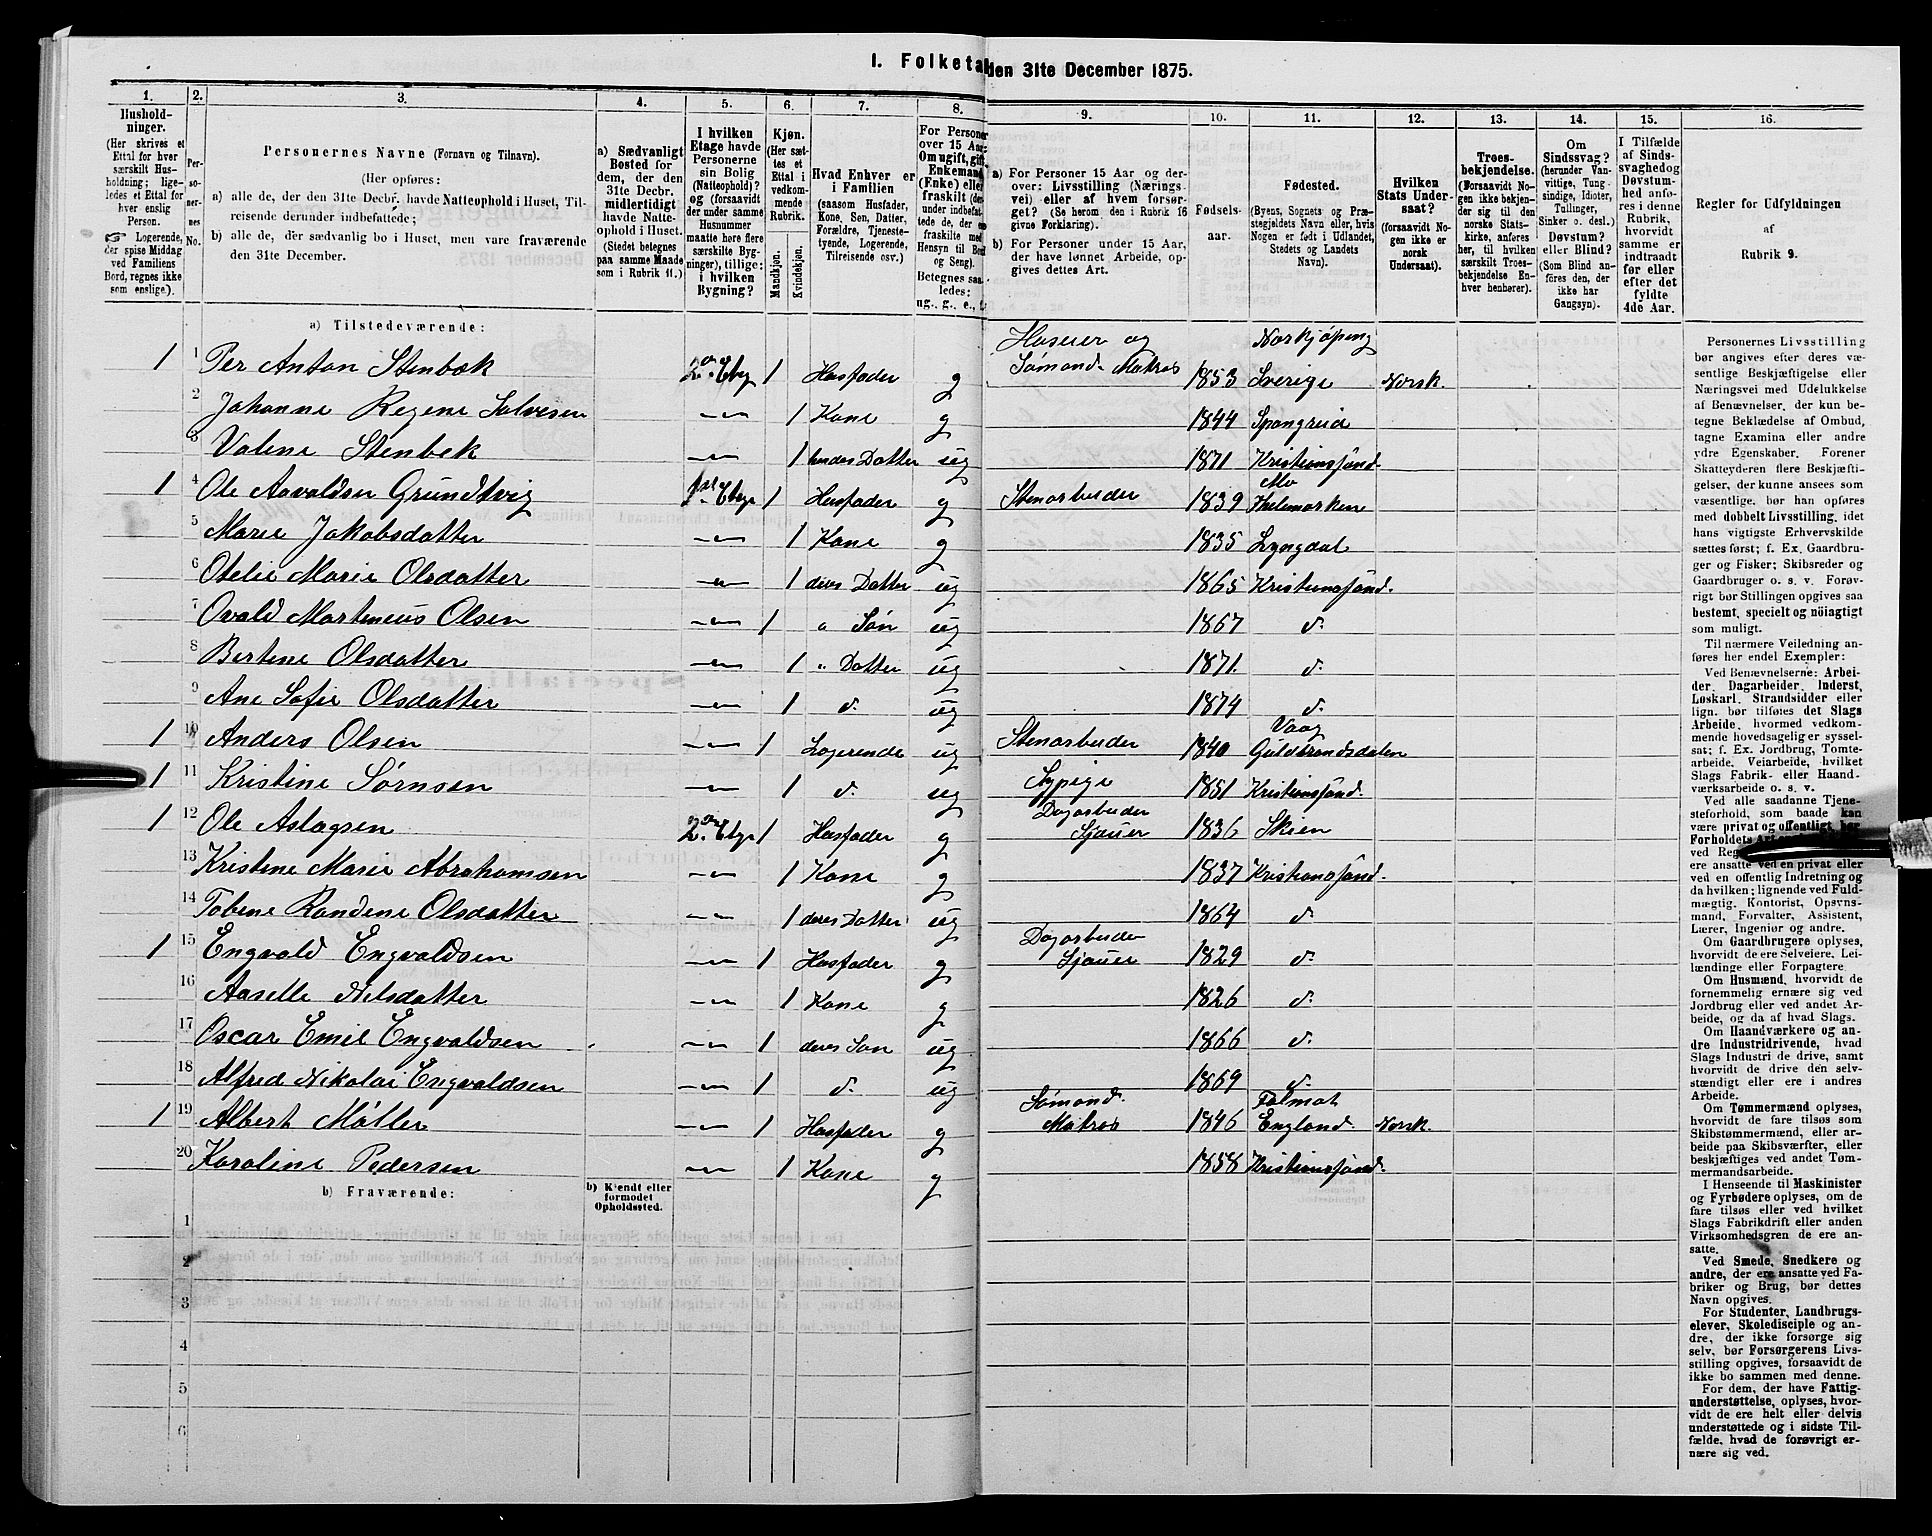 I. Folketæ
den 31te December 1875.
1. 2. 3. 4. 5. 6. 7. 8. 9. 10. 11. 12. 13. 14. 15. 16.
Hushold-
ninger.
(Her skrives et
Ettal for hver
særskilt Hus-
holdning; lige-
ledes et Ettal for
hver enslig
Person.
☞ Logerende,
der spise Middag
ved Familiens
Bord, regnes ikke
som enslige.).
Per-
so-
ner-
nes
No.
Personernes Navne (Fornavn og Tilnavn).
(Her opføres:
a) alle de, der den 31te Decbr. havde Natteophold i Huset, Til-
reisende derunder indbefattede;
b) alle de, der sædvanlig bo i Huset, men vare fraværende
den 31te December.
a) Sædvanligt
Bosted for
dem, der den
31te Decbr.
midlertidigt
havde Natte-
ophold i Huset.
(Stedet betegnes
paa samme Maade
som i Rubrik 11.)
I hvilken
Etage havde
Personerne
sin Bolig
(Natteophold)?
og (forsaavidt
der under samme
Husnummer
maatte høre flere
særskilte Byg-
ninger), tillige:
i hvilken
Bygning?
Kjøn.
(Her sæt-
tes et
Ettal i
vedkom-
mende
Rubrik.
Mandkjøn.
Kvindekjøn.
Hvad Enhver er
i Familien
(saasom Husfader,
Kone, Søn, Datter,
Forældre, Tjeneste-
tyende, Logerende,
Tilreisende osv.)
For Persone
over 15 Aar:
Om ugift, gift,
Enkemand
(Enke) eller
fraskilt (der-
under indbefat-
tede de, der ere
fraskilte med
Hensyn til Bord
og Seng).
Betegnes saa-
ledes:
ug., g., e., f.
a) For Personer 15 Aar og der-
over: Livsstilling (Nærings-
vei) eller af hvem forsør-
get? (Se herom den i Rubrik 16
givne Forklaring).
b) For Personer under 15 Aar,
der have lønnet Arbeide, op-
gives dettes Art.
Fødsels-
aar.
Fødested.
(Byens, Sognets og Præ-
stegjeldets Navn eller, hvis
Nogen er født i Udlandet,
Stedets og Landets
Navn).
Hvilken
Stats Under-
saat?
(forsaavidt No-
gen ikke er
norsk
Undersaat).
Troes-
bekjendelse.
(Forsaavidt No-
gen ikke bekjen-
der sig til den
norske Stats-
kirke, anføres
her, til hvilken
særskilt Troes-
bekjendelse En-
hver henhører).
Om
Sindssvag?
(herunder Van-
vittige, Tung-
sindige, Idioter,
Tullinger,
Sinker o. desl.)
Døvstum?
eller Blind?
(Som Blind an-
føres den, der
ikke har
Gangsyn).
I Tilfælde
af Sinds-
svaghed og
Døvstum-
hed anfø-
res i denne
Rubrik,
hvorvidt
samme er
indtraadt
før eller
efter det
fyldte
4de Aar.
Regler for Udfyldningen
af
Rubrik 9.
a) Tilstedeværende:
1 1 Per Anton Stenbæk 2den Etage 1 Husfader g Huseier og Sømand. Matros 1853 Norkjøping Sverige Norsk.
2 Johanne Regine Salvesen 1 Kone g 1844 Spangreid
3 Valine Stenbek 1 hendes Datter ug 1871 Kristianssand.
1 4 Ole Aavaldsen Grundtvig 1ste Etage 1 Husfader g Stenarbeider 1839 Mo Thelemarken
5 Marie Jakobsdatter 1 Kone g 1835 Lyngdal
6 Otelie Marie Olsdatter 1 deres Datter ug 1865 Kristianssand.
7 Ovald Martenius Olsen 1 " Søn ug 1867 d.
8 Bertine Olsdatter 1 " Datter ug 1871. d.
9 Ane Sofie Olsdatter 1 d. ug 1874 d.
1 10 Anders Olsen 1 Logerende ug Stenarbeider 1840 Vaag Guldbrandsdalen
1 11 Kristine Sørnsen 1 d. ug Sypige 1851 Kristianssand.
1 12 Ole Aslagsen 2den Etage 1 Husfader g Dagarbeider Sjauer 1836 Skien
13 Kristine Marie Abrahamsen 1 Kone g 1837 Kristianssand.
14 Tobine Randine Olsdatter 1 deres Datter ug 1864 d.
1 15 Engvald Engvaldsen 1 Husfader g Dagarbeider Sjauer 1829 d.
16 Aaselle Nilsdatter 1 Kone g 1826 d.
17 Oscar Emil Engvaldsen 1 deres Søn ug 1866 d.
18 Alfred Nikolai Engvaldsen 1 d. ug 1869 d.
1 19 Albert Møller 1 Husfader g Sømand. Matros 1846 Falmot England. Norsk.
20 Karoline Pedersen 1 Kone g 1858 Kristianssand.
b) Fraværende:
b) Kjendt eller
formodet
Opholdssted.
1
2
3
4
5
6
Personernes Livsstilling
bør angives efter deres væ-
sentlige Beskjæftigelse eller
Næringsvei med Udelukkelse
af Benævnelser, der kun be-
tegne Beklædelse af Ombud,
tagne Examina eller andre
ydre Egenskaber. Forener
Skatteyderen flere Beskjæfti-
gelser, der kunne ansees som
væsentlige, bør han opføres
med dobbelt Livsstilling, idet
hans vigtigste Erhvervskilde
sættes først; f. Ex. Gaardbru-
ger og Fisker; Skibsreder og
Gaardbruger o. s. v. Forøv-
rigt bør Stillingen opgives saa
bestemt, specielt og nöiagtigt
som muligt.
Til nærmere Veiledning an-
føres her endel Exempler:
Ved Benævnelserne: Arbei-
der, Dagarbeider, Inderst,
Løskarl, Strandsidder eller
lign. bør tilføres det Slags
Arbeide, hvormed vedkom-
mende hovedsagelig er syssel-
sat; f. Ex. Jordbrug, Tomte-
arbeide, Veiarbeide, hvilket
Slags Fabrik- eller Haand-
værksarbeide o. s. v.
Ved alle saadanne Tjene-
steforhold, som baade kan
være privat og offentligt, bør
Forholdets Art
ved Reg
ere ansatte ved en privat eller
ved en offentlig Indretning og
da hvilken; lignende ved Fuld-
mægtig, Kontorist, Opsyns-
mand, Forvalter, Assistent,
Lærer, Ingeniør og andre.
Om Gaardbrugere oplyses,
hvorvidt de ere Selveiere, Lei-
lændinge eller Forpagtere
Om Husmænd, hvorvidt de
fornemmelig ernære sig ved
Jordbrug eller ved andet Ar-
beide, og da af hvad Slags.
Om Haandværkere og an-
dre Industridrivende, hvad
Slags Industri de drive, samt
hvorvidt de drive den selv-
stændigt eller ere i andres
Arbeide.
Om Tømmermænd oplyses,
hvorvidt de fare tilsøs som
Skibstømmermænd, eller ar-
beide paa Skibsværfter, eller
beskjæftiges ved andet Tøm-
mermandsarbeide.
I Henseende til Maskinister
og Fyrbødere oplyses, om de
fare tilsøs eller ved hvilket
Slags Fabrikdrift eller anden
Virksomhedsgren de ere an-
satte.
Ved Smede, Snedkere og
andre, der ere ansatte ved Fa-
briker og Brug, bør dettes
Navn opgives.
For Studenter, Landbrugs-
elever, Skoledisciple og an-
dre, der ikke forsørge sig
selv, bør Forsørgerens Livs-
stilling opgives, forsaavidt de
ikke bo sammen med denne.
For dem, der have Fattig-
understøttelse, oplyses, hvor-
vidt de ere helt eller delvis
understøttede og i sidste Til-
fælde, hvad de forøvrigt er-
nære sig ved.